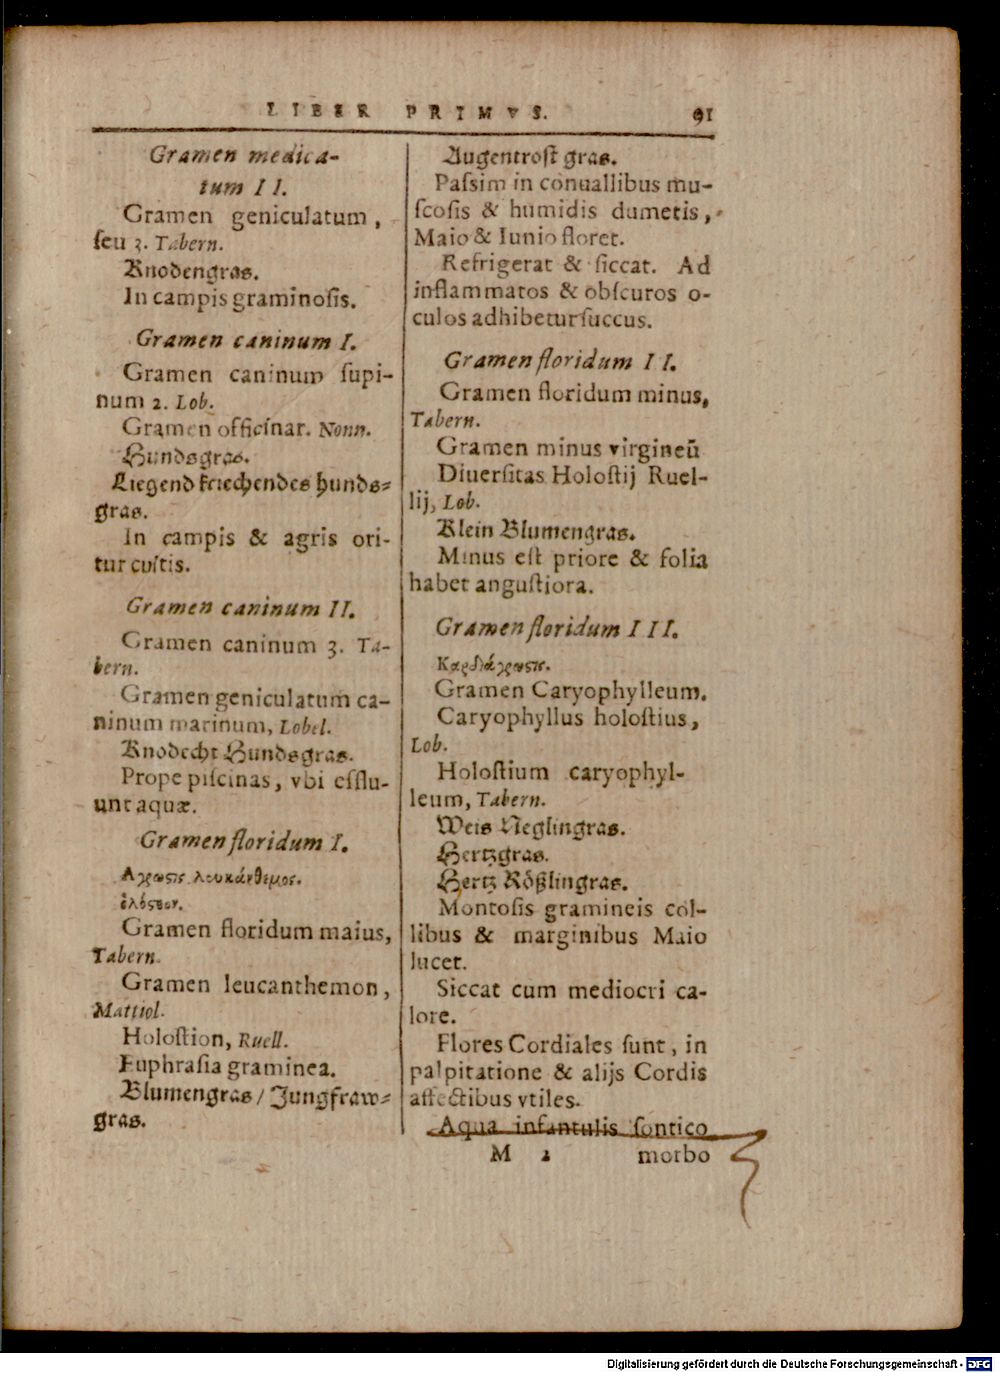 LIBER PRIMVS. 91
Gramen medica-
tum II.
Gramen geniculatum,
ſeu 3. Tabern.
Knodengras.
In campis graminoſis.
Gramen caninum I.
Gramen caninum ſupi-
num 2. Lob.
Gramen officinar. Nonn.
Hundsgras.
Liegend kriechendes hunds-
gras.
In campis & agris ori-
tur cultis.
Gramen caninum II.
Gramen caninum 3. Ta-
bern.
Gramen geniculatum ca-
ninum marinum, Lobel.
Knodecht Hundsgras.
Prope piſcinas, vbi efflu-
unt aquæ.
Gramen floridum I.
Αγρωστις λευκάνθεμος.
ὁλόστεον.
Gramen floridum maius,
Tabern.
Gramen leucanthemon,
Mattiol.
Holoſtion, Ruell.
Euphraſia graminea.
Blumengras / Jungfraw-
gras.
Augentroſt gras.
Paſsim in conuallibus mu-
ſcoſis & humidis dumetis,
Maio & Iunio floret.
Refrigerat & ſiccat. Ad
inflammatos & obſcuros o-
culos adhibetur ſuccus.
Gramen floridum II.
Gramen floridum minus,
Tabern.
Gramen minus virgineũ
Diuerſitas Holoſtij Ruel-
lij, Lob.
Klein Blumengras.
Minus eſt priore & folia
habet anguſtiora.
Gramen floridum III.
Καρδιάχρωστις.
Gramen Caryophylleum.
Caryophyllus holoſtius,
Lob.
Holoſtium caryophyl-
leum, Tabern.
Weis Neglingras.
Hertzgras.
Hertz Rößlingras.
Montoſis gramineis col-
libus & marginibus Maio
lucet.
Siccat cum mediocri ca-
lore.
Flores Cordiales ſunt, in
palpitatione & alijs Cordis
affectibus vtiles.
Aqua infantulis ſontico
M 2 morbo
Digitalisierung gefördert durch die Deutsche Forschungsgemeinschaft - DFG